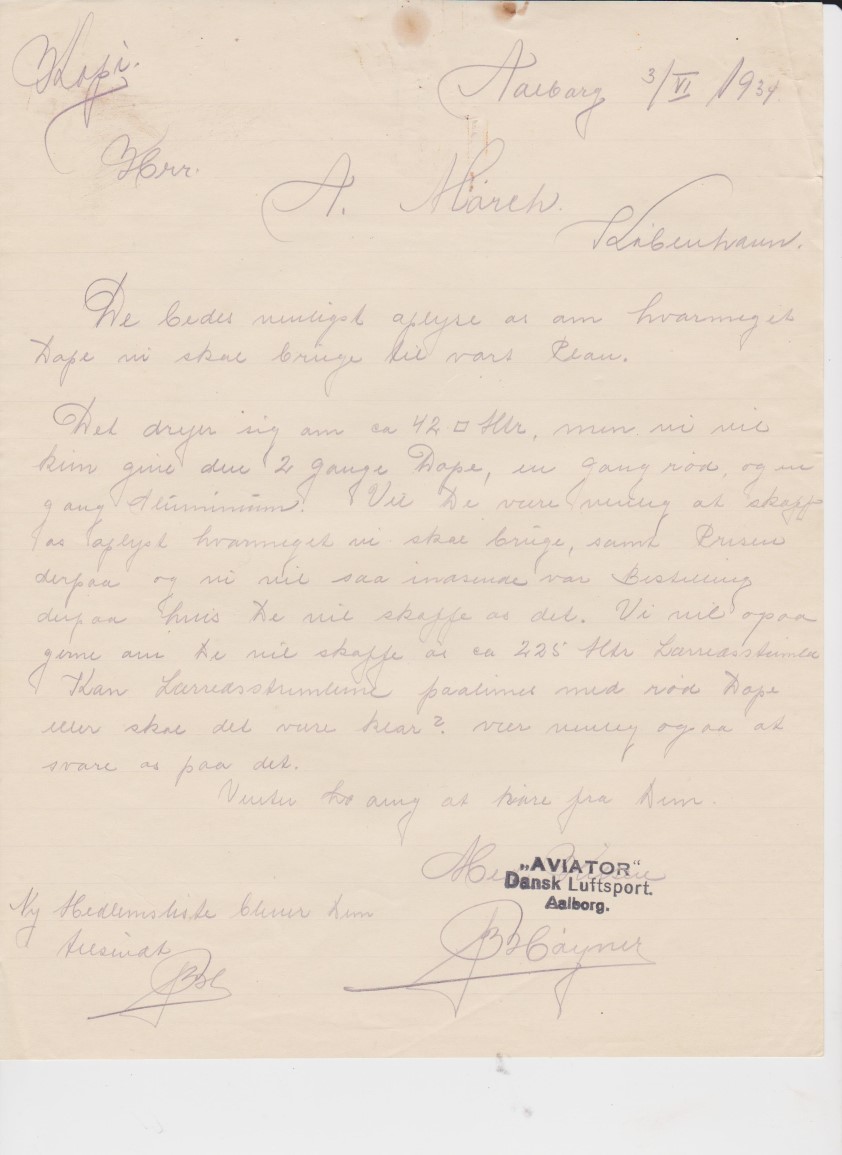 Kopi.
Aalborg 3/VI 1934
Herr.
A. March.
København.
De bedes venligst oplyse os om hvormeget
Dope vi skal bruge til vort Plan.
Det drejer sig om ca 42 □ Mtr, men vi vil
kun give den 2 Gange Dope, en Gang rød, og en
gang Aluminium. Vil De være venlig at skaffe
os oplyst hvormeget vi skal bruge, samt Prisen
derpaa og vi vil saa indsende vor Bestilling
derpaa hvis De vil skaffe os det. Vi vil ogsaa
gerne om De vil skaffe os ca 225 Mtr Lærredsstrimler
Kan Lærredsstrimlerne paalimes med rød Dope
eller skal det være klar? vær venlig ogsaa at
svare os paa det.
Venter at høre fra Dem.
Med Hilsen
„AVIATOR“
Dansk Luftsport.
Aalborg.
Ny Medlemsliste bliver Dem
tilsendt